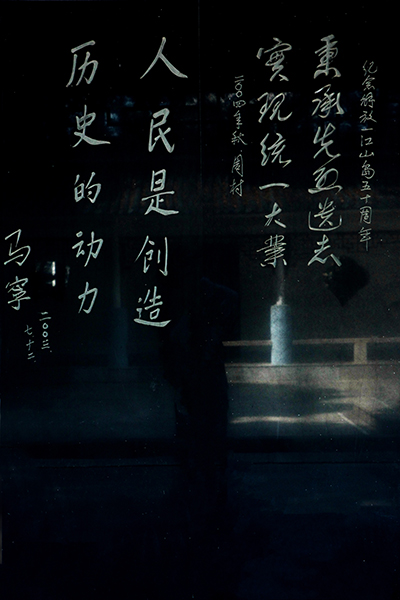 纪念解放一江山岛五十周年
秉承先烈遗志
實现统一大業
二〇〇四年秋 周村
人民是创造
历史的动力
马寧
二〇〇三、
七十二、